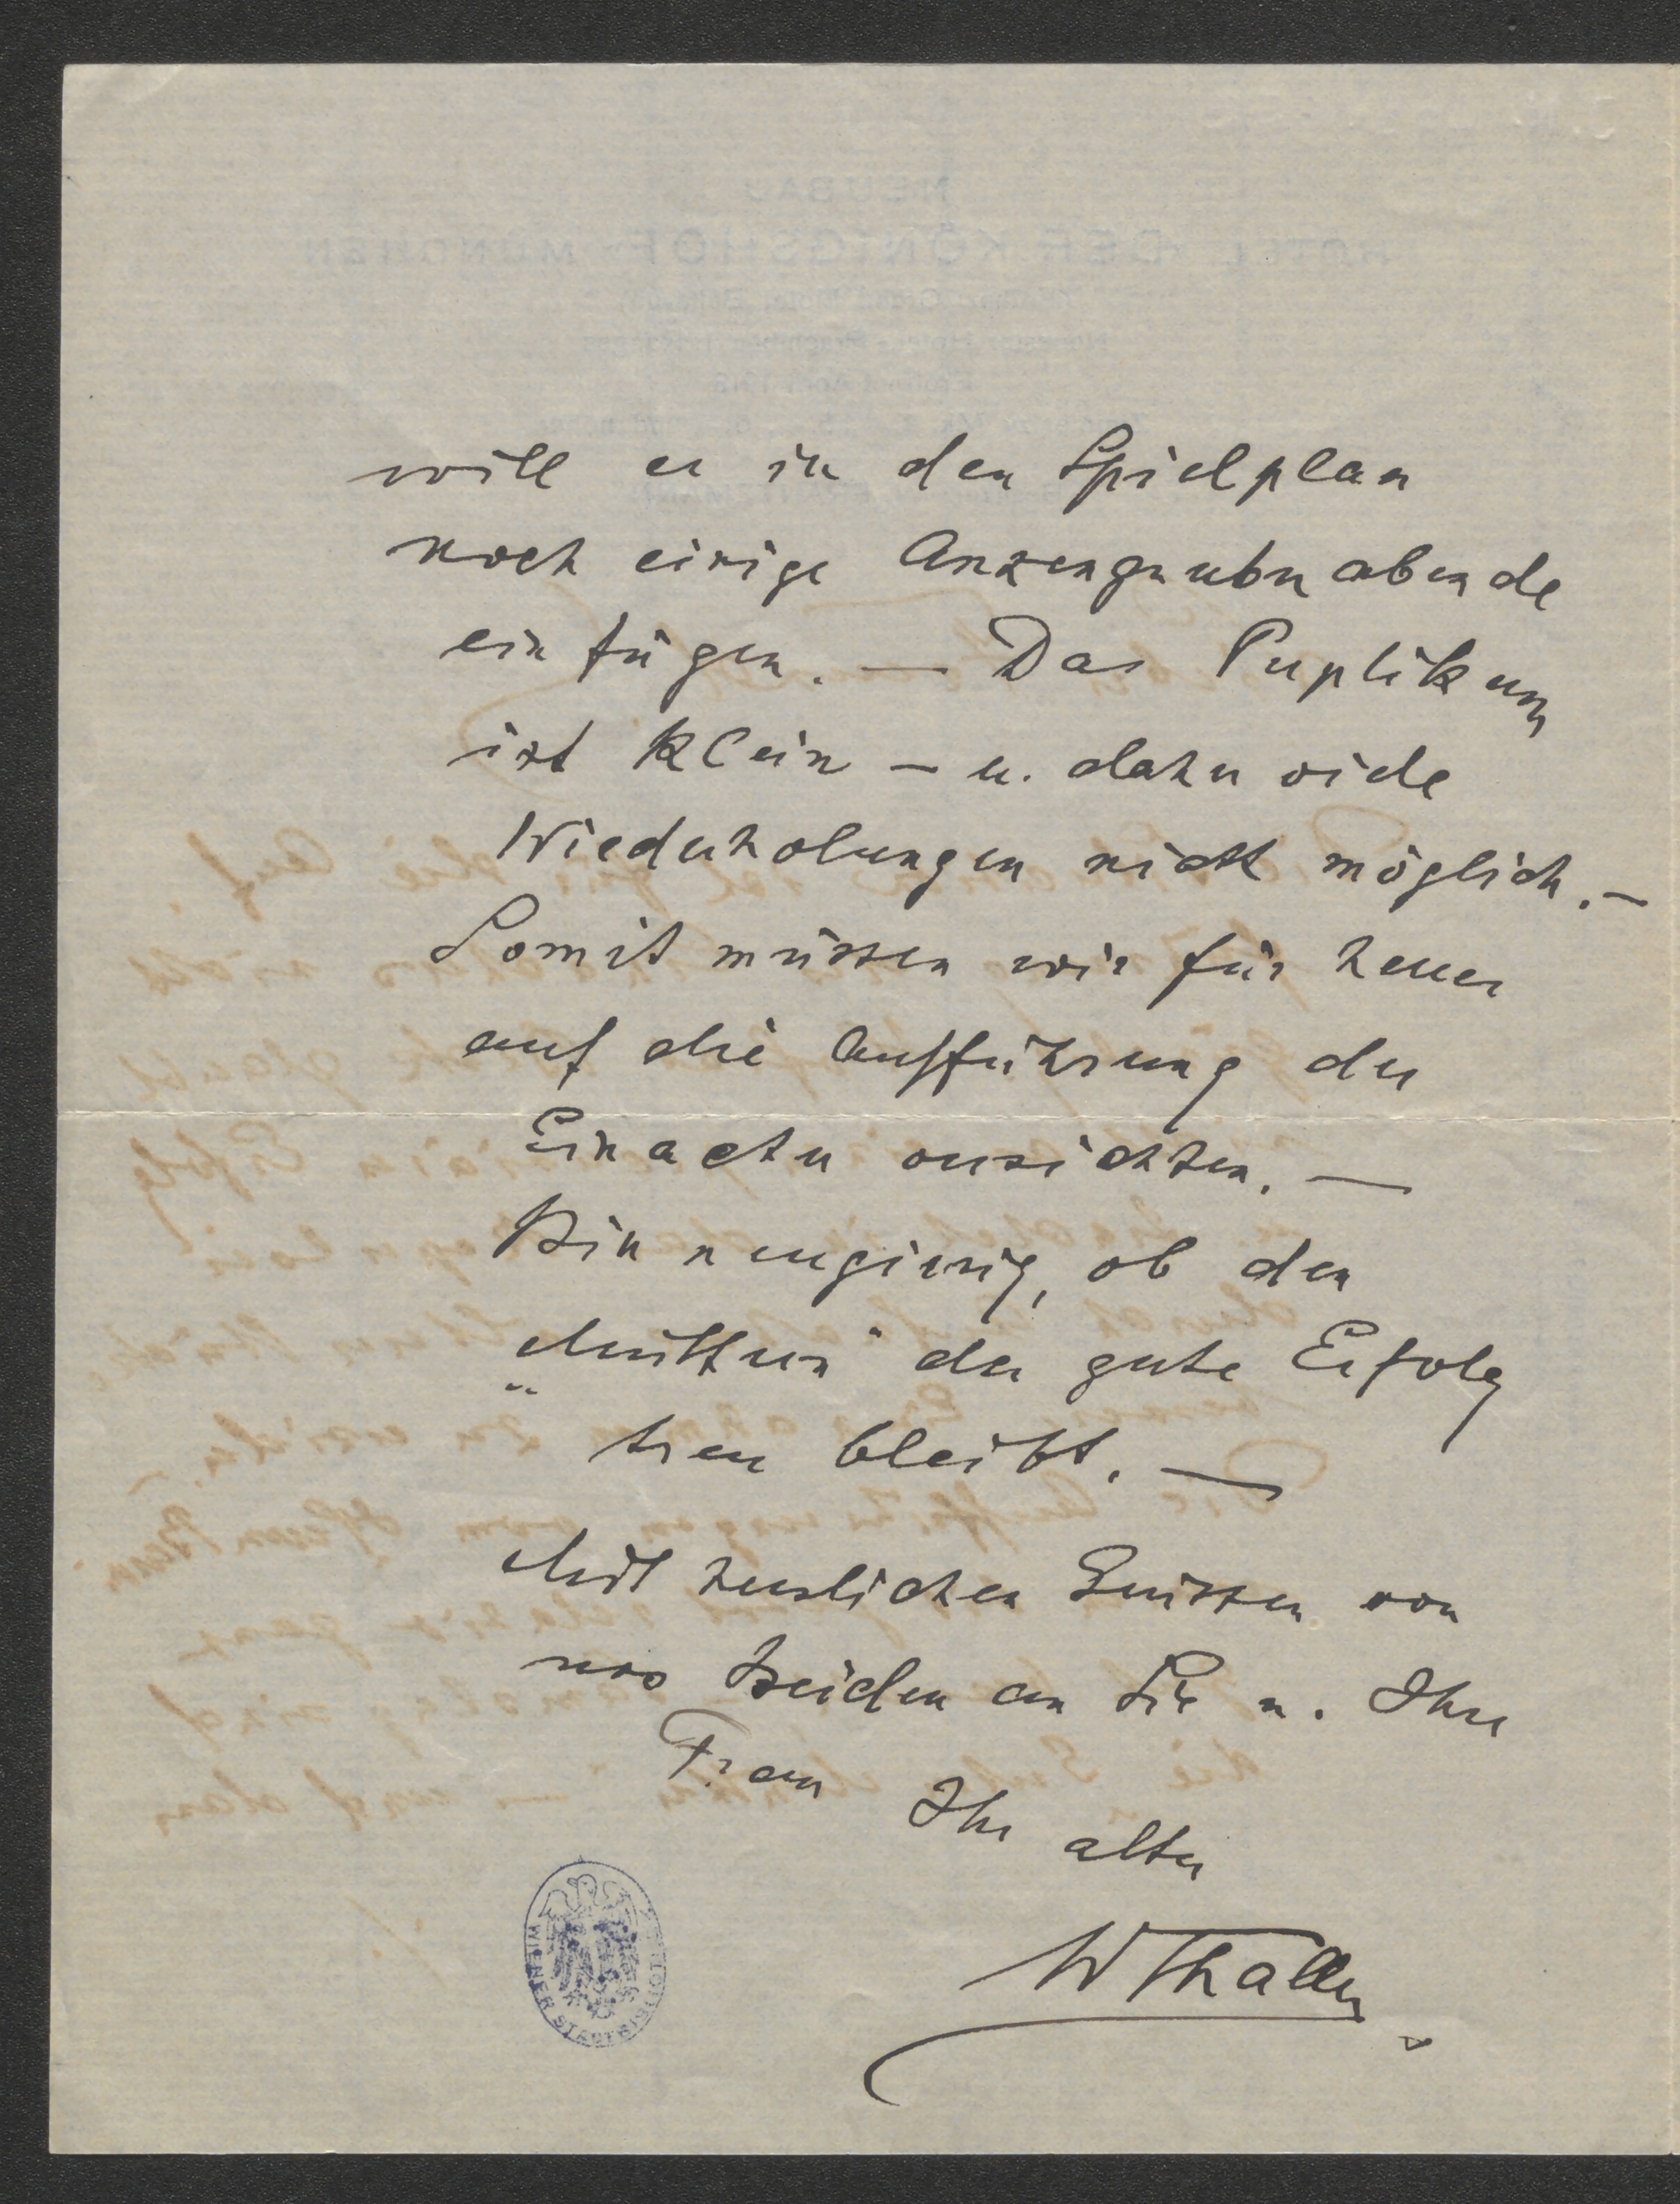 will er in den Spielplan
noch einige Anzengruberabende
einfügen. — Das Puplikum
ist klein – u. daher viele
Wiederholungen nicht möglich. –
Somit müssen wir für heuer
auf die Aufführung der
Einacter verzichten. —
Bin neugierig, ob den
„Müttern" der gute Erfolg
treu bleibt. —
Mit herzlichen Grüssen von
uns Beiden an Sie u. Ihre
Frau
Ihr alter
WThaller
WIENER STADTBIBLIOTHEK